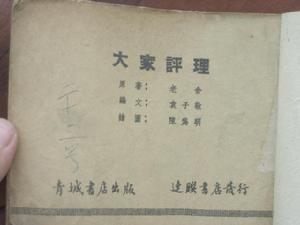 大家評理
原著：老舍
編文：袁子敬
繪圖：陳烯明
青城書店出版 連聯書店發行